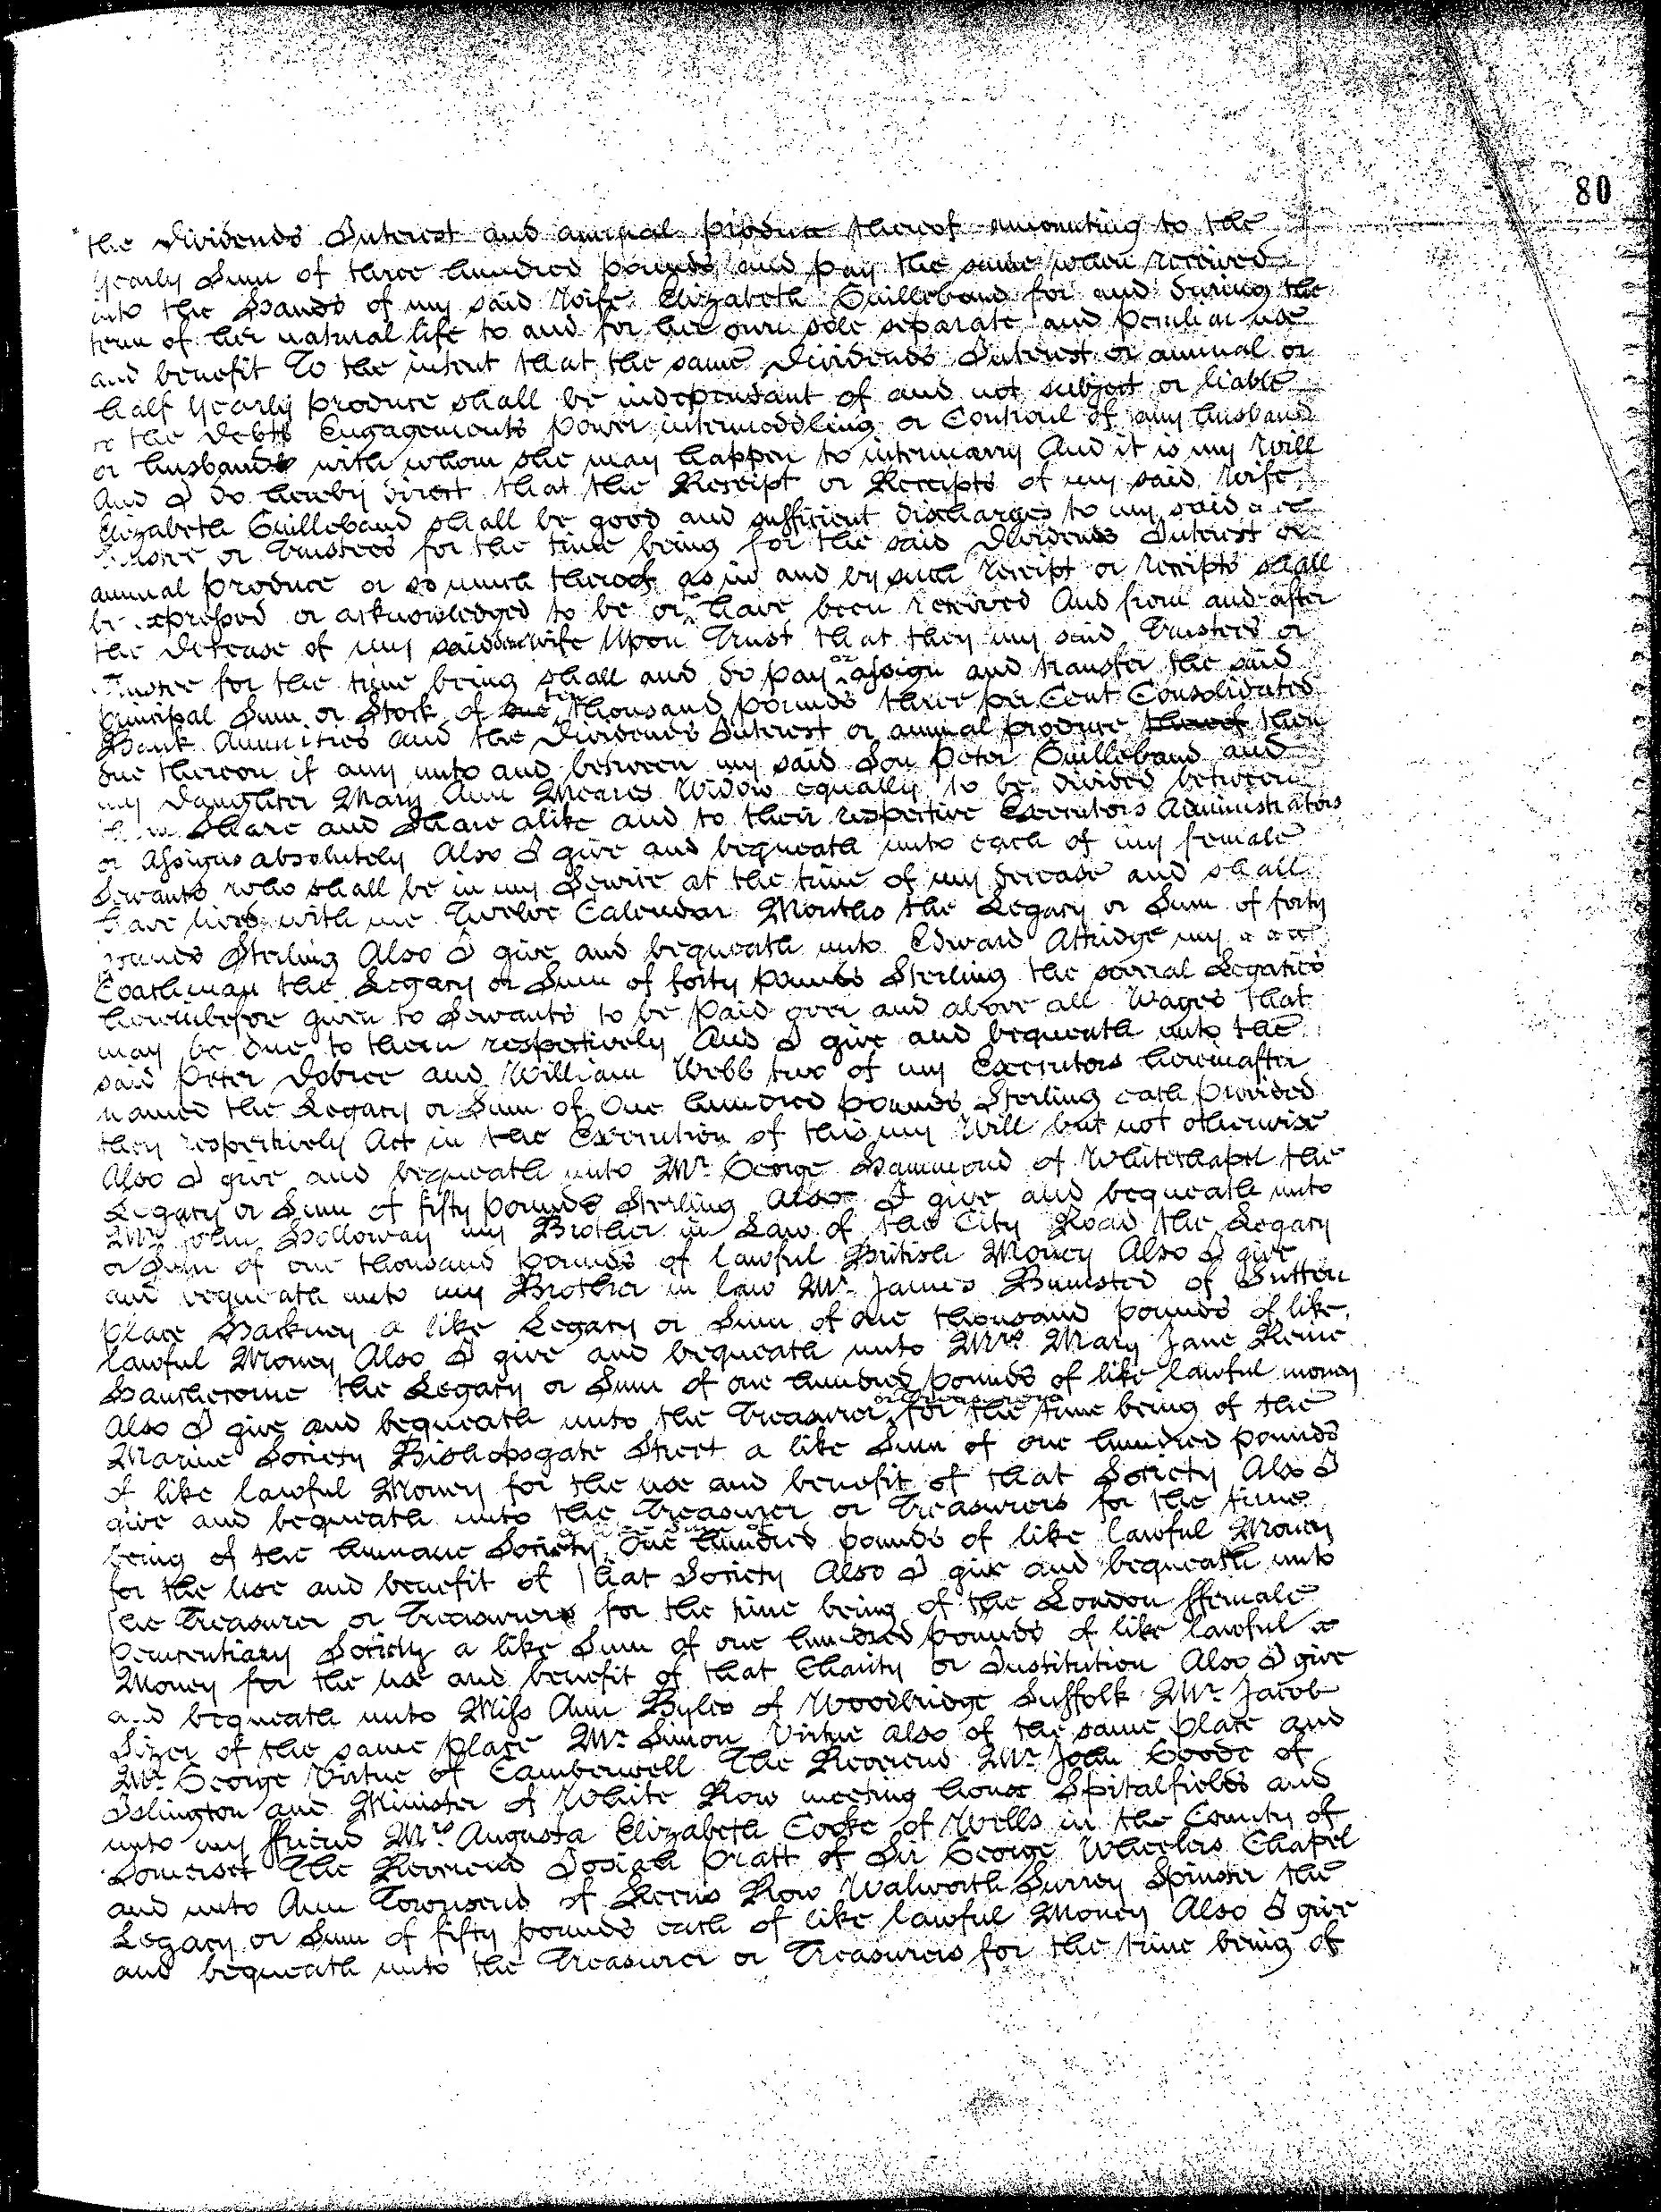 80
the Dividends Interest and annual produce thereof amounting to the
yearly Sum of three hundred pounds and pay the same when received
into the Hands of my said Wife Elizabeth Guillebaud for and during the
term of her natural life to and for her own sole separate and peculiar use
and benefit To the intent that the same Dividends Interest or annual or
half yearly produce shall be independant of and not subject or liable
to the Debts Engagements power intermeddling or Controul of any husband
or husbands with whom she may happen to intermarry And it is my Will
And I do hereby direct that the Receipt or Receipts of my said Wife
Elizabeth Guillebaud shall be good and sufficient discharges to my said
Trustee or Trustees for the time being for the said Dividends Interest or
annual produce or so much thereof as in and by such receipt or receipts shall
be expressed or acknowledged to be or to have been received And from and after
the Decease of my said Wife Upon Trust that they my said Trustees or
Trustee for the time being shall and do pay or assign and transfer the said
principal Sum or Stock of ten thousand pounds three per Cent Consolidated
Bank Annuities and the Dividends Interest or annual produce thereof then
due thereon if any unto and between my said Son Peter Guillebaud and
my Daughter Mary Ann Meares Widow equally to be divided between
them Share and Share alike and to their respective Executors Administrators
or Assigns absolutely Also I give and bequeath unto each of my female
Servants who shall be in my Service at the time of my decease and shall
have lived with me Twelve Calendar Months the Legacy or Sum of forty
pounds Sterling Also I give and bequeath unto Edward Attridge my
Coachman the Legacy or Sum of forty pounds Sterling the several Legacies
hereinbefore given to Servants to be paid over and above all Wages that
may be due to them respectively And I give and bequeath unto the
said Peter Dobree and William Webb two of my Executors hereinafter
named the Legacy or Sum of One hundred pounds Sterling each provided
they respectively Act in the Execution of this my Will but not otherwise
Also I give and bequeath unto Mr. George Hammond of Whitechapel the
Legacy or Sum of fifty pounds Sterling Also I give and bequeath unto
Mr. John Holloway my Brother in Law of the City Road the Legacy
or Sum of one thousand pounds of lawful British Money Also I give
and bequeath unto my Brother in law Mr. James Bumsted of Sutton
place Hackney a like Legacy or Sum of one thousand pounds of like
lawful Money Also I give and bequeath unto Mrs. Mary Jane
the Legacy or Sum of one hundred pounds of like lawful money
Also I give and bequeath unto the Treasurer or Treasurers for the time being of the
Marine Society Bishopsgate Street a like Sum of one hundred pounds
of like lawful Money for the use and benefit of that Society Also I
give and bequeath unto the Treasurer or Treasurers for the time
being of the humane Society One hundred pounds of like lawful Money
for the Use and benefit of that Society Also I give and bequeath unto
the Treasurer or Treasurers for the time being of the London ffemale
Penitentiary Society a like Sum of one hundred pounds of like lawful
Money for the use and benefit of that Charity or Institution Also I give
and bequeath unto Miss Ann Byles of Woodbridge Suffolk Mr. Jacob
Sizer of the same place Mr. Simon Virtue also of the same place and
Mr. George Virtue of Camberwell The Reverend Mr. John Goode of
Islington and Minister of White Row meeting house Spitalfields and
unto my ffriend Mrs. Augusta Elizabeth Cocke of Wells in the County of
Somerset The Reverend Josiah Pratt of Sir George Wheelers Chapel
and unto Ann Townsend of Keens Row Walworth Surrey Spinster the
Legacy or Sum of fifty pounds each of like lawful Money Also I give
and bequeath unto the Treasurer or Treasurers for the time being of